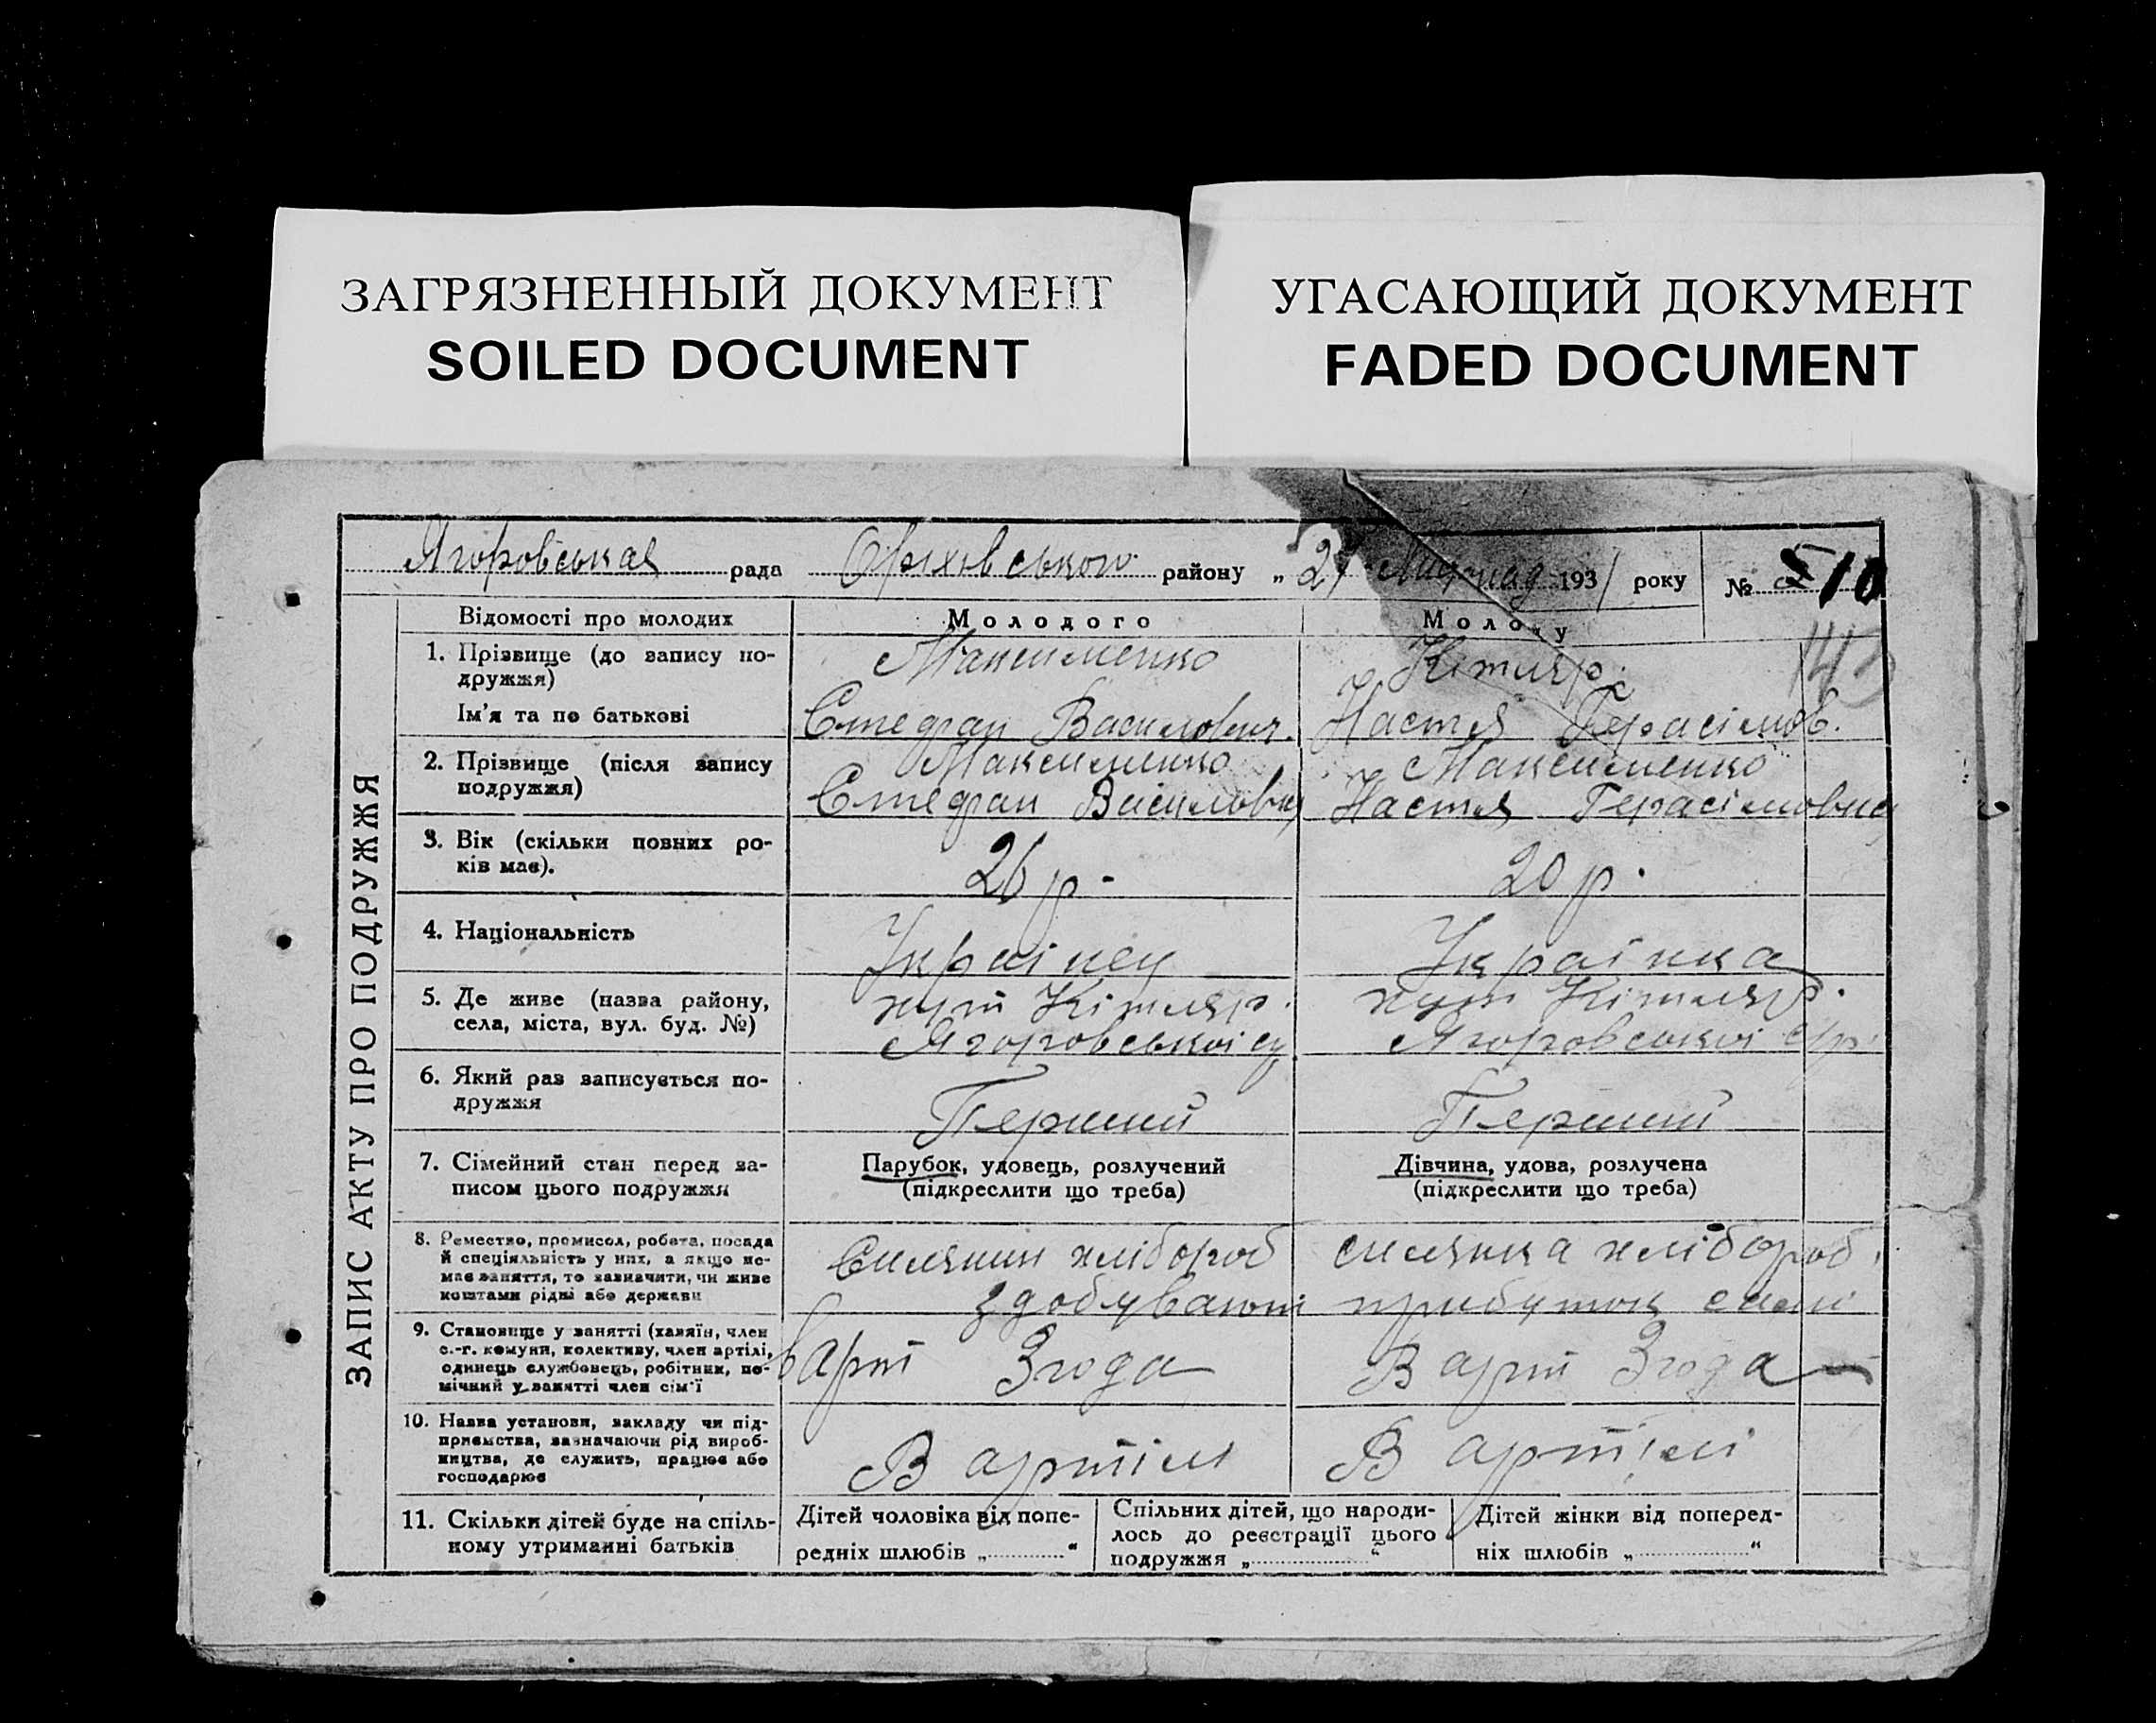 ЗАГРЯЗНЕННЫЙ ДОКУМЕНТ
SOILED DOCUMENT
УГАСАЮЩИЙ ДОКУМЕНТ
FADED DOCUMENT
ЗАПИС АКТУ ПРО ПОДРУЖЖЯ
Ягоровськая рада Оріховського району „ 1931 року № 10
143
Відомості про молодих
Молодого
Молоду
1. Прізвище (до запису по-
дружжя)
Ім'я та по батькові
Максименко
Стефан Василович.
Кітляр.
Настя Герасімов.
2. Прізвище (після запису
подружжя)
Максименко
Стефан Василович
Максименко
Настя Герасімовна
3. Вік (скільки повних ро-
ків має).
26 р.
20 р.
4. Національність
Украінец
Украінка
5. Де живе (назва району,
села, міста, вул. буд. №)
хут Кітляр.
Ягоровськоі
хут Кітляр.
Ягоровськоі с/р.
6. Який раз записується по-
дружжя
Перший
Перший
7. Сімейний стан перед за-
писом цього подружжя
Парубок, удовець, розлучений
(підкреслити що треба)
Дівчина, удова, розлучена
(підкреслити що треба)
8. Ремество, промисол, робота, посада
й спеціяльність у них, а якщо не-
має заняття, то зазначити, чи живе
коштами рідні або держави
Силянин хлібороб
силянка хлібороб.
здобувают прибуток
9. Становище у занятті (хазяїн, член
с.-г. комуни, колективу, член артілі,
одинець службовець, робітник, по-
мічний у занятті член сім'ї
в арт Згода
В арт Згода
10. Назва установи, закладу чи під-
приємства, зазначаючи рід вироб-
ництва, де служить, працює або
господарює
В артілі
В артілі
11. Скільки дітей буде на спіль-
ному утриманні батьків
Дітей чоловіка від попе-
редніх шлюбів „ “
Спільних дітей, що народи-
лось до реєстрації цього
подружжя „ “
Дітей жінки від поперед-
ніх шлюбів „ “